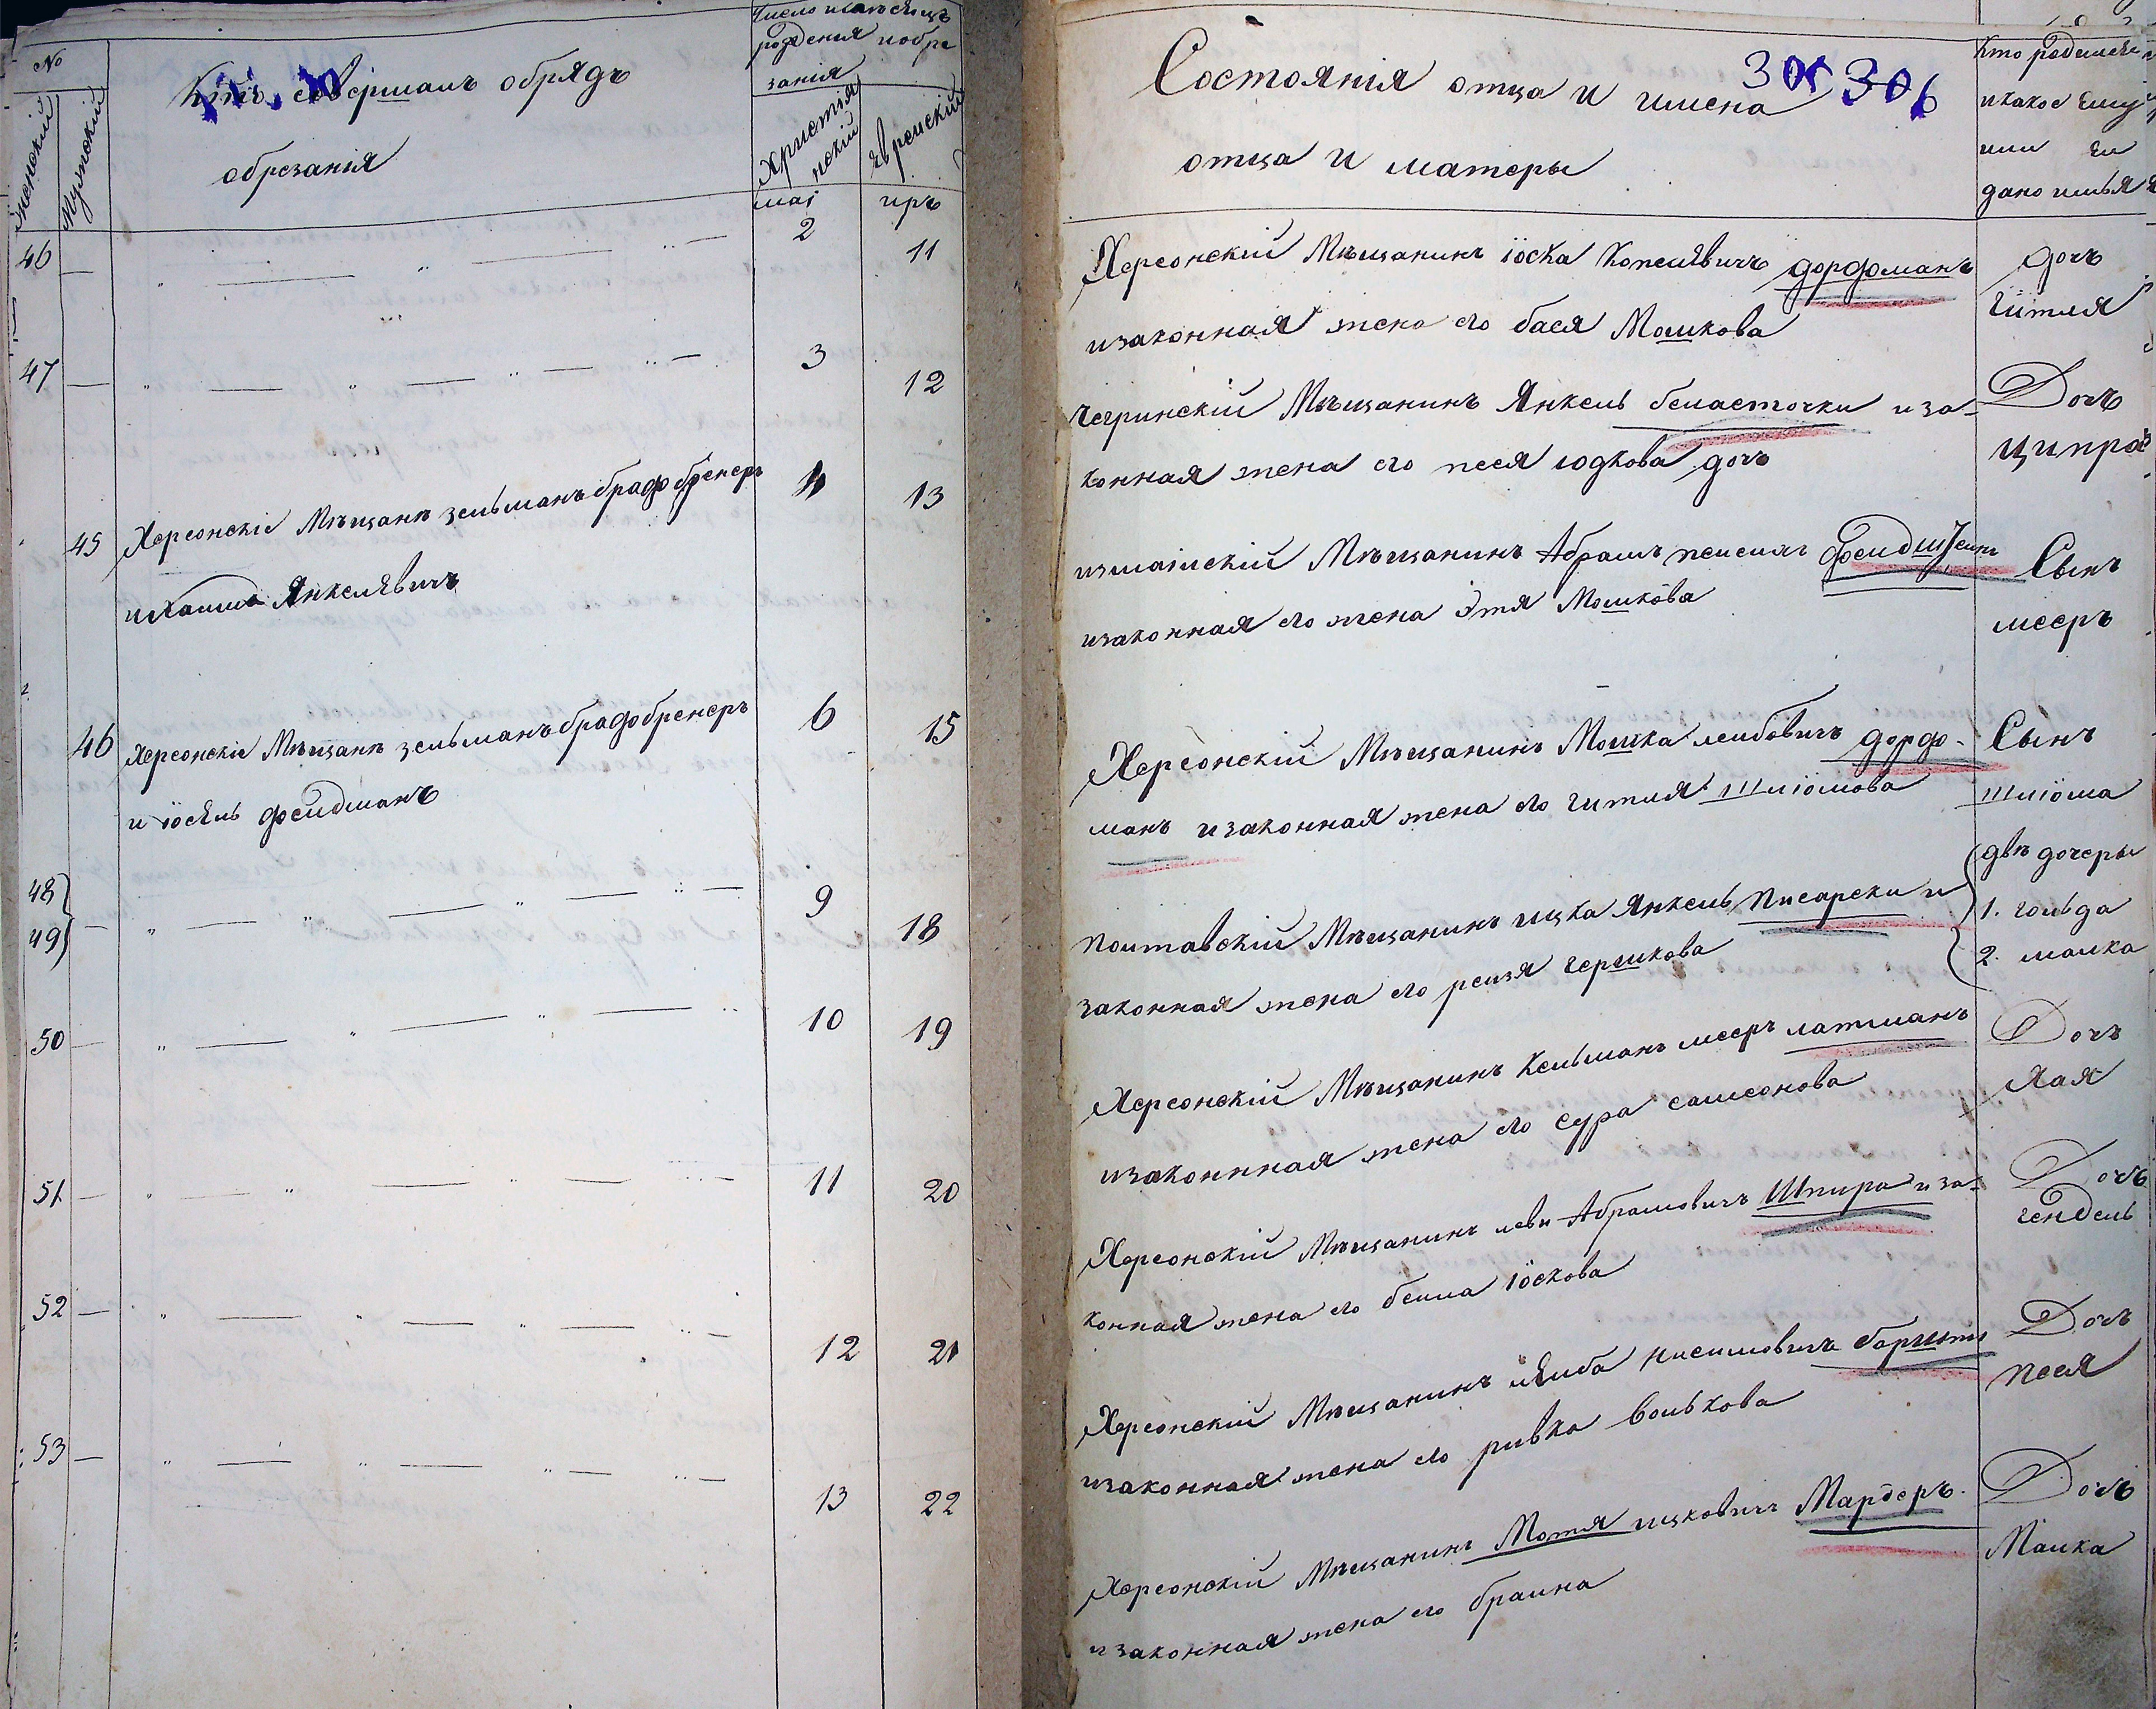 №
Женскій
Мужескій
Кто совершалъ обрядъ
обрезанія
Число и
рождения и обре
занія
Христіа
нскій
Еврейскій
маі
иръ
46 — 2 11
47 — 3 12
45 Херсонскіе Мѣщанѣ зельманъ брафобренеръ 4 13
и Янкелевичъ
46 Херсонскіе Мѣщанѣ зельманъ брафобренеръ 6 15
и іосель фельдманъ
48 9 18
49
50 — 10 19
51 — 11 20
52 — 12 21
53 — 13 22
Состоянія отца и имена
отца и матеры
305 306
Кто родился
и какое ему
или ей
дано имья
Херсонскій Мѣщанинъ іоска Копелевичъ дорфманъ дочь
и законная жена его бася Мошкова гитля
Чегринскій Мѣщанинъ Янкель беласточки и за- Дочь
конная жена его песя юдкова дочь ципра
измаилскій Мѣщанинъ Абрамъ фельдштеинъ Сынъ
и законная его жена Этя Мошкова мееръ
Херсонскій Мѣщанинъ Мошка леибовичъ дорфо- Сынъ
манъ и законная жена его гитля шліомова шліома
двѣ дочеры
полтавскій Мѣщанинъ ицка Янкель Писарски и 1. гольда
законная жена его реизя гершкова 2. малка
Херсонскій Мѣщанинъ Кельманъ мееръ латманъ Дочь
и законнная жена его сура самсонова Хая
Херсонскій Мѣщанинъ леви Абрамовичъ Шпира и за- Дочь
конная жена его беила іоскова гендель
Херсонскій Мѣщанинъ леиба нисимовичъ Дочь
и законная жена его ривка волькова песя
Херсонскій Мѣщанинъ Мотя ицковичъ Мардеръ. Дочь
и законная жена его браина Малка